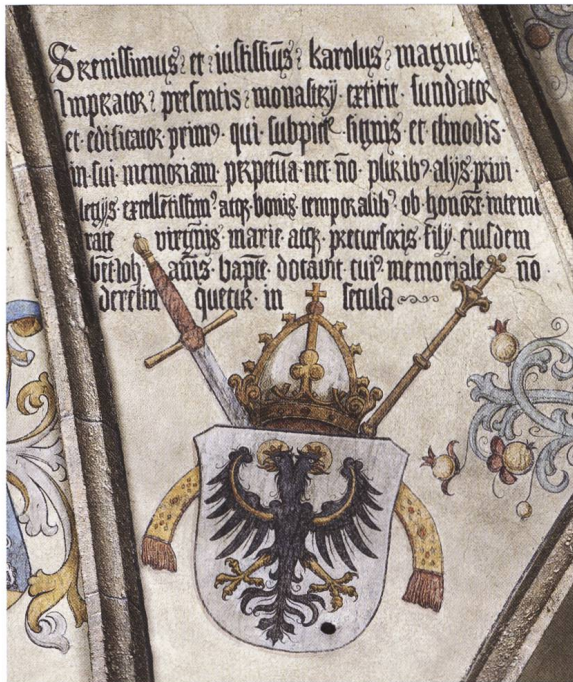 Serenissimus et iustissim̄ꝰ karolus magnus
Imperator presentis monastery extitit fundator
et edificator primꝰ qui subpictꝭ signis et clinodis
in sui memoriam perpetuā nec nō pluribꝰ alys privi
legys excellētissimꝭ atqꝫ bonis temporalibꝰ ob honorē interne
rate virginis marie atqꝫ precursoris fily eiusdem
bēti Joh annis baptē dotavit cuiꝰ memoriale nō
derelin quetur in secula